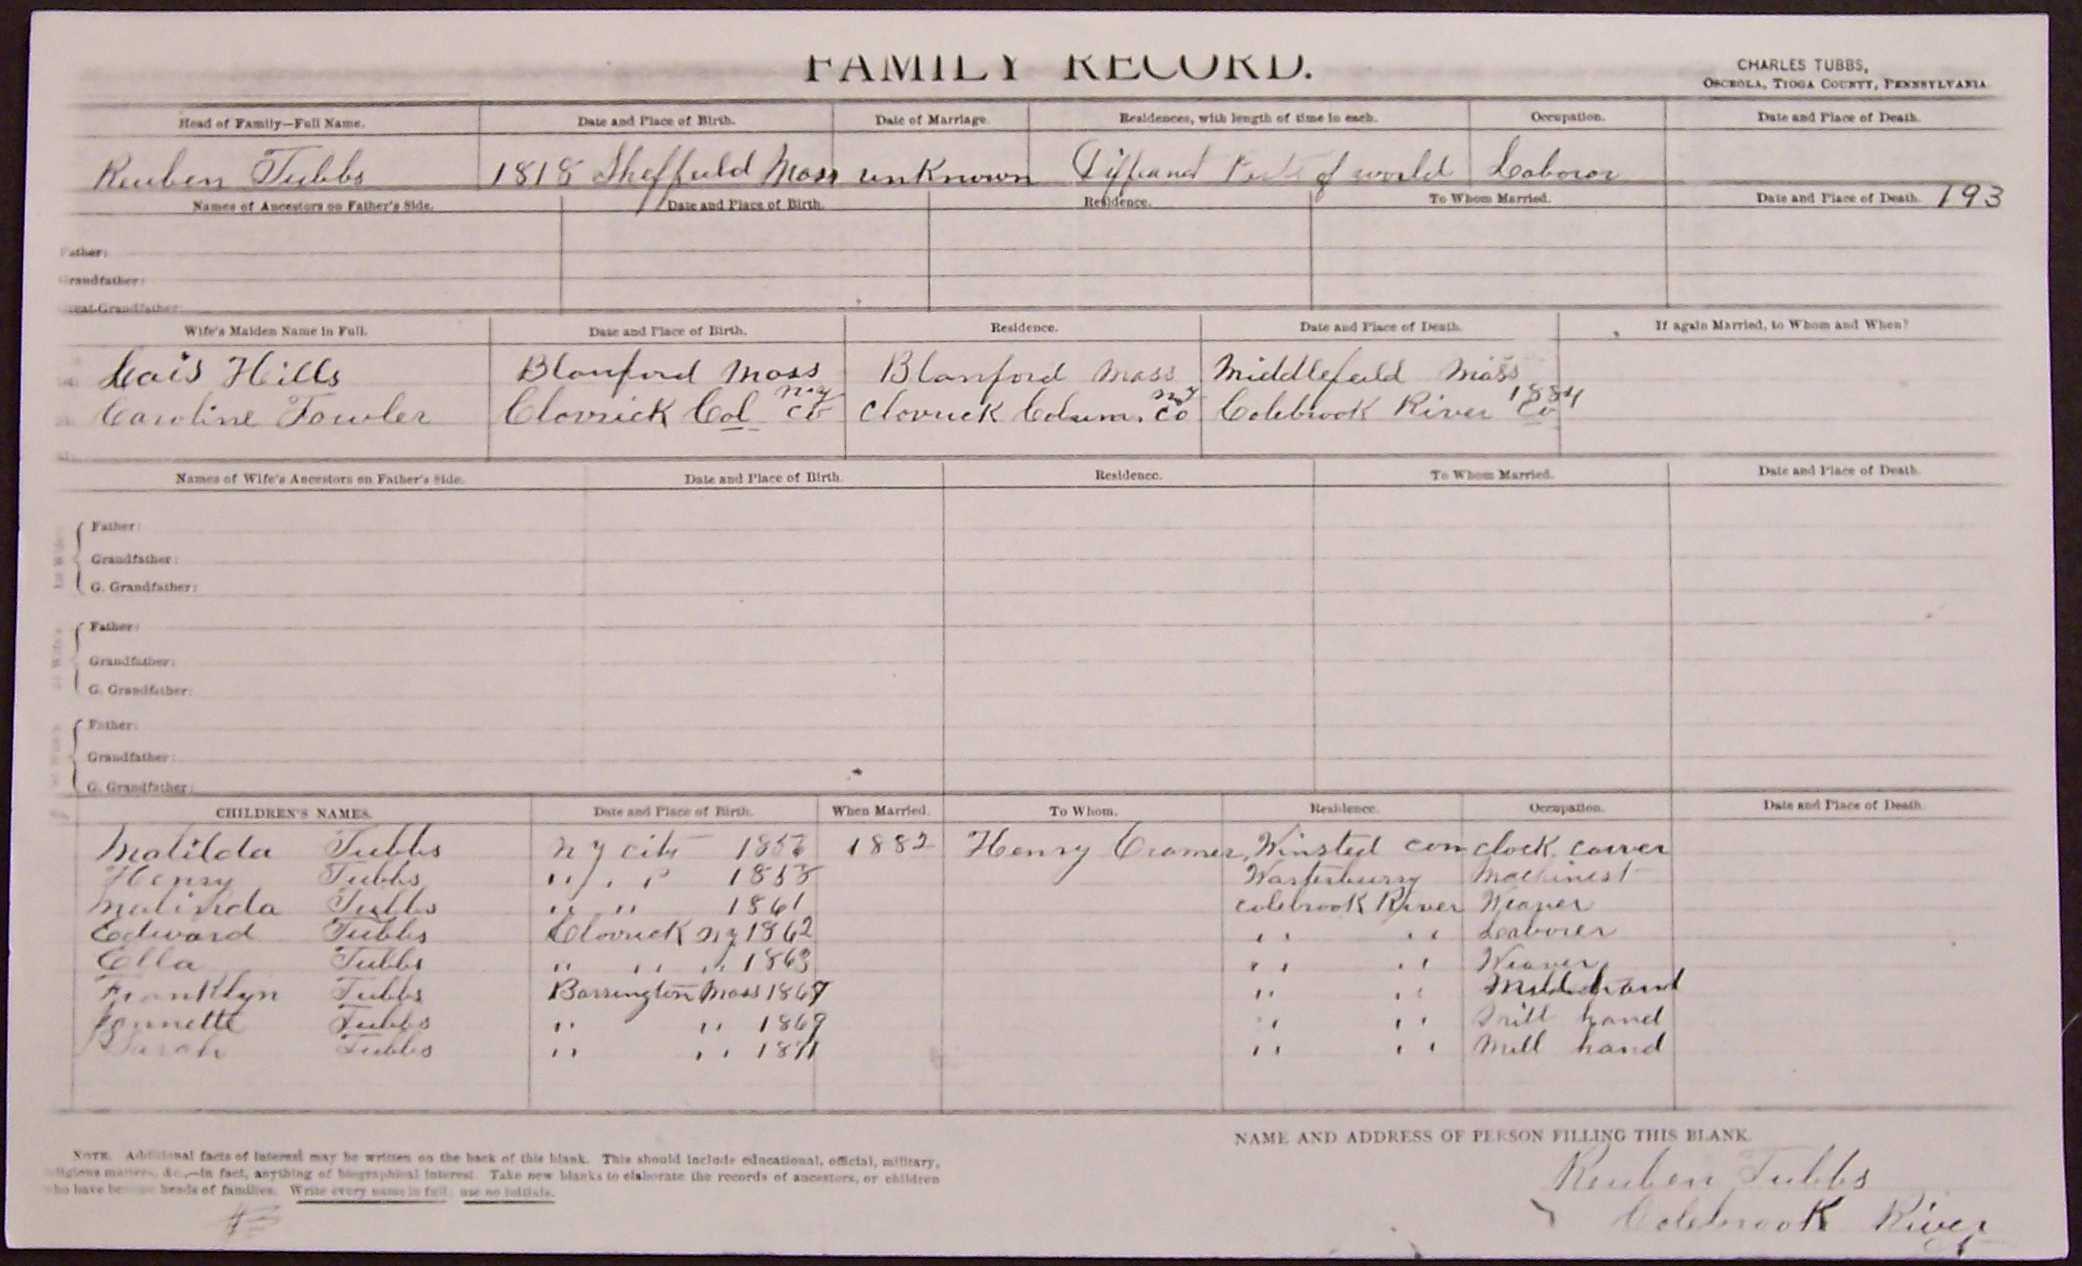 FAMILY RECORD.
CHARLES TUBBS,
OSCEOLA, TIOGA COUNTY, PENNSYLVANIA
Head of Family—Full Name. Date and Place of Birth. Date of Marriage. Residences, with length of time in each. Occupation. Date and Place of Death.
Reuben Tubbs 1818 Sheffield Mass unknown of world Laboror
Names of Ancestors on Father's Side. Date and Place of Birth. Residence. To Whom Married. Date and Place of Death. 193
Father:
Grandfather:
Great-Grandfather:
Wife's Maiden Name in Full. Date and Place of Birth. Residence. Date and Place of Death. If again Married, to Whom and When?
Lois Hills Blanford Mass Blanford Mass Middlefeild Mass
Caroline Fowler Clovrick Col Co N.Y Clovrick Colum. Co N.Y Colebrook River Co 1884
Names of Wife's Ancestors on Father's Side. Date and Place of Birth. Residence. To Whom Married. Date and Place of Death.
Father:
Grandfather:
G. Grandfather:
Father:
Grandfather:
G. Grandfather:
Father:
Grandfather:
G. Grandfather:
CHILDREN'S NAMES. Date and Place of Birth. When Married. To Whom. Residence. Occupation. Date and Place of Death.
Matilda Tubbs N y city 1882 Henry Cramer Winsted con clock carver
Henry Tubbs " " 1858 Machinest
Malinda Tubbs " " 1861 Colebrook River Weaver
Edward Tubbs Clovrick Ny 1862 " " Laborer
Ella Tubbs " " " 1863 " " Weaver
Franklyn Tubbs Barrington Mass 1867 " " Mill hand
Jannette Tubbs " " 1869 " " Mill hand
Sarah Tubbs " " 1871 " " Mill hand
NAME AND ADDRESS OF PERSON FILLING THIS BLANK.
Reuben Tubbs
Colebrook River
NOTE. Additional facts of interest may be written on the back of this blank. This should include educational, official, military,
religious matters, &c.,—in fact, anything of biographical interest. Take new blanks to elaborate the records of ancestors, or children
who have become heads of families. Write every name in full; use no initials.